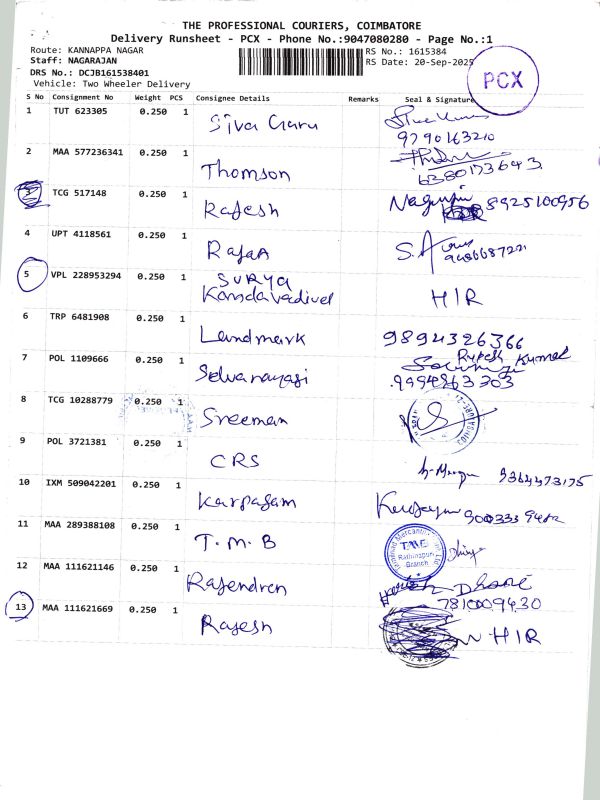 THE PROFESSIONAL COURIERS, COIMBATORE
Delivery Runsheet - PCX - Phone No.:9047080280 - Page No.:1
Route: KANNAPPA NAGAR
RS No.: 1615384
Staff: NAGARAJAN
RS Date: 20-Sep-2025
DRS No.: DCJB161538401
PCX
Vehicle: Two Wheeler Delivery
S No Consignment No Weight PCS Consignee Details Remarks Seal & Signature
1 TUT 623305 0.250 1 Siva Guru
9790163210
2 MAA 577236341 0.250 1 Thomson
6380173643
3 TCG 517148 0.250 1 Rajesh 8925100956
4 UPT 4118561 0.250 1 Rajaa
5 VPL 228953294 0.250 1 SURYA
Kandavadivel HIR
6 TRP 6481908 0.250 1 Landmark 9894326366
Rupesh Kumar
7 POL 1109666 0.250 1 Selvanayagi
9994863303
8 TCG 10288779 0.250 1 Sreeman
9 POL 3721381 0.250 1 CRS 9364473175
10 IXM 509042201 0.250 1 Karpagam
11 MAA 289388108 0.250 1 T.M.B
TMB
Rathinapuri
Branch
12 MAA 111621146 0.250 1 Rajendren
7810009430
13 MAA 111621669 0.250 1 Rajesh HIR